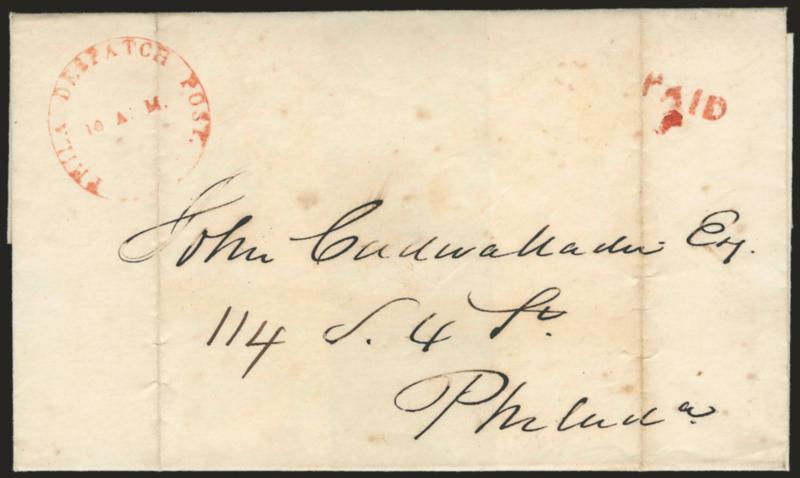 PHILA DESPATCH POST.
10 A. M.
PAID
John Cadwallader Esq.
114 S. 4 St.
Philada